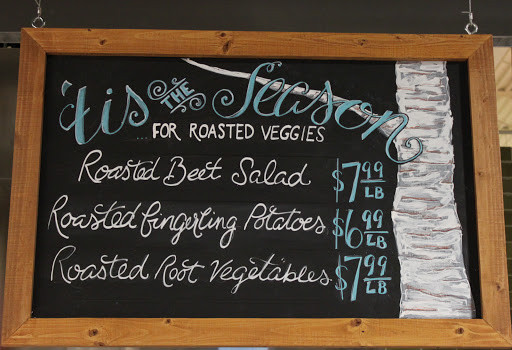 'tis THE Season
...FOR ROASTED VEGGIES
Roasted Beet Salad $7.99 LB
Roasted Fingerling Potatoes $6.99 LB
Roasted Root Vegetables $7.99 LB